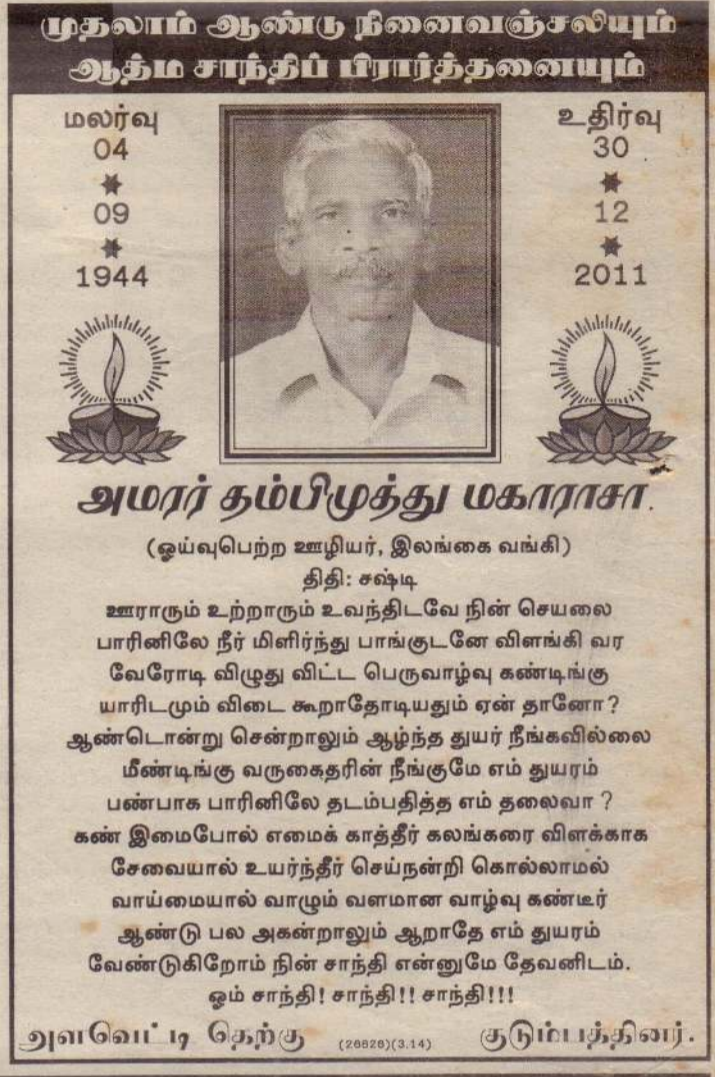 முதலாம் ஆண்டு நினைவஞ்சலியும்
ஆத்ம சாந்திப் பிரார்த்தனையும்
மலர்வு
04
09
1944
உதிர்வு
30
12
2011
அமரர் தம்பிமுத்து மகாராசா.
(ஓய்வுபெற்ற ஊழியர், இலங்கை வங்கி)
திதி: சஷ்டி
ஊராரும் உற்றாரும் உவந்திடவே நின் செயலை
பாரினிலே நீர் மிளிர்ந்து பாங்குடனே விளங்கி வர
வேரோடி விழுது விட்ட பெருவாழ்வு கண்டிங்கு
யாரிடமும் விடை கூறாதோடியதும் ஏன் தானோ?
ஆண்டொன்று சென்றாலும் ஆழ்ந்த துயர் நீங்கவில்லை
மீண்டிங்கு வருகைதரின் நீங்குமே எம் துயரம்
பண்பாக பாரினிலே தடம்பதித்த எம் தலைவா ?
கண் இமைபோல் எமைக் காத்தீர் கலங்கரை விளக்காக
சேவையால் உயர்ந்தீர் செய்நன்றி கொல்லாமல்
வாய்மையால் வாழும் வளமான வாழ்வு கண்டீர்
ஆண்டு பல அகன்றாலும் ஆறாதே எம் துயரம்
வேண்டுகிறோம் நின் சாந்தி என்னுமே தேவனிடம்.
ஓம் சாந்தி! சாந்தி!! சாந்தி!!!
அளவெட்டி தெற்கு (26626)(3.14) குடும்பத்தினர்.